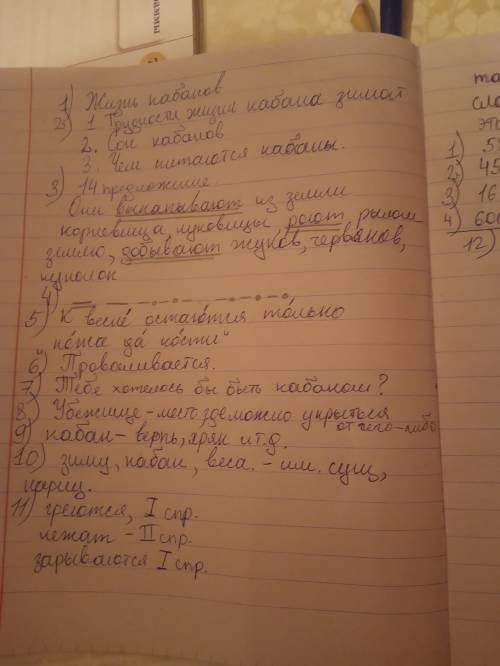 аммы
1) Жизнь кабанов
2) 1 Трудности жизни кабана зимой
2. Сон кабанов
3. Чем питаются кабаны.
3) 14 предложение
Они выкапывают из земли
корневища, луковицы, роют рылом
землю, добывают жуков, червяков,
куколок
4)
5) К весне остаются только
кожа да кости"
6) Проваливается.
7) Тебе хотелось бы быть кабаном?
8) Убежище - место, где можно укрыться
от чего-либо
9) кабан - вепрь, хряк и т.д.
10) зиму, кабан, веса. - им. сущ,
нариц.
11) греются, I спр.
лежат - II спр.
зарываются I спр.
та
сло
это
1) 5
2) 45
3) 16
4) 600
12)